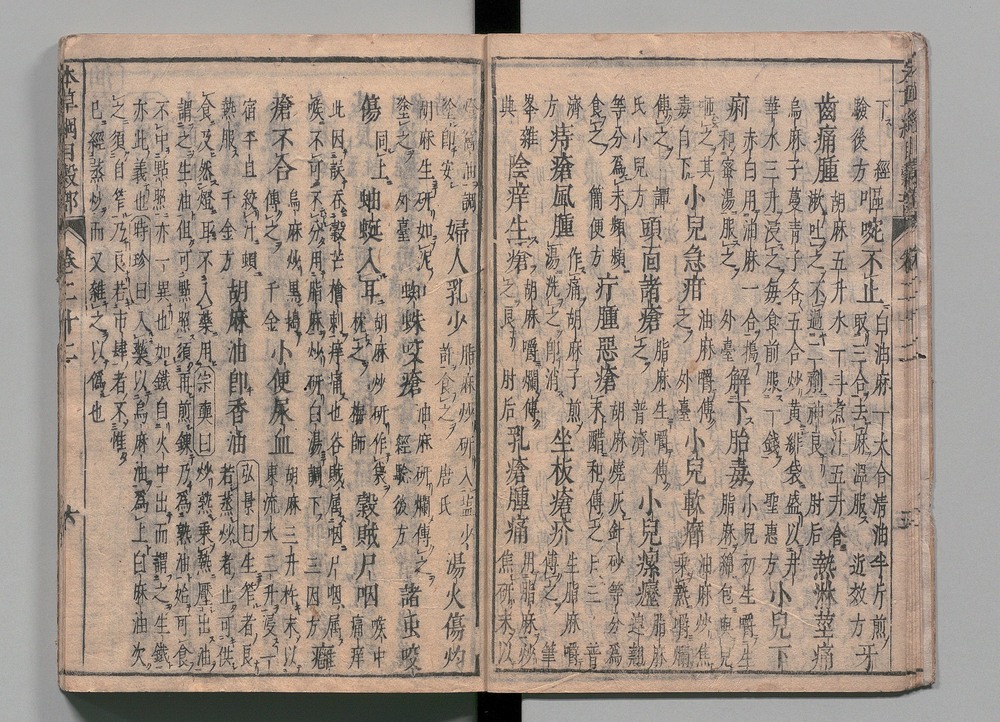 下 經驗後方 嘔啘不止 白油麻一大合清油半斤煎取三合去麻溫服 近效方 牙
齒痛腫 胡麻五升水一斗煮汁五升含漱吐之不過二劑神良 肘后 熱淋莖痛
烏麻子蔓青子各五合炒黃緋袋盛以井華水三升浸之每食前服一錢 聖惠方 小兒下
痢 赤白用油麻一合搗和蜜湯服之 外臺 解下胎毒 小兒初生嚼生脂麻綿包與兒
咂之其毒自下 小兒急疳 油麻嚼傅之 外臺 小兒軟癤 油麻炒焦乘熱嚼爛
傅之 譚氏小兒方 頭面諸瘡 脂麻生嚼傅之 普濟 小兒瘰癧 脂麻連翹
等分爲末頻頻食之 簡便方 疔腫惡瘡 胡麻燒灰針砂等分爲末醋和傅之 上三 普
濟方 痔瘡風腫 作痛胡麻子煎湯洗之即消 坐板瘡疥 生脂麻嚼傅之 筆
峯雜與 陰痒生瘡 胡麻嚼爛傅之良 肘后 乳瘡腫痛 用脂麻炒焦研末以
窩油調塗即安 婦人乳少 脂麻炒研入盐少許食之 唐氏 湯火傷灼
胡麻生研如泥塗之 外臺 蜘蛛咬瘡 油麻研爛傅之 經驗後方 諸虫咬
傷 同上 蚰蜒入耳 胡麻炒研作袋枕之 梅師 穀賊尸咽 喉中痛痒
此因誤吞穀芒槍刺痒痛也谷賊属咽尸咽属喉不可不分用脂麻炒研白湯調下 三因方 癰
瘡不合 烏麻炒黑搗傅之 千金 小便尿血 胡麻三升杵末以東流水二升浸一
宿平旦絞汁頓熱服 千金方 胡麻油即香油 弘景曰生笮者良若蒸炒者止可供
食及然燈耳不入藥用宗奭曰炒熱乘熱壓出油謂之生油但可點照須再煎鍊乃爲熟油始可食
不中點照亦一異也如鐵自火中出而謂之生鐵亦此義也時珍曰入藥以烏麻油爲上白麻油次
之須自笮乃良若市肆者不惟已經蒸炒而又雜之以僞也
本草綱目穀部 卷二十二 六